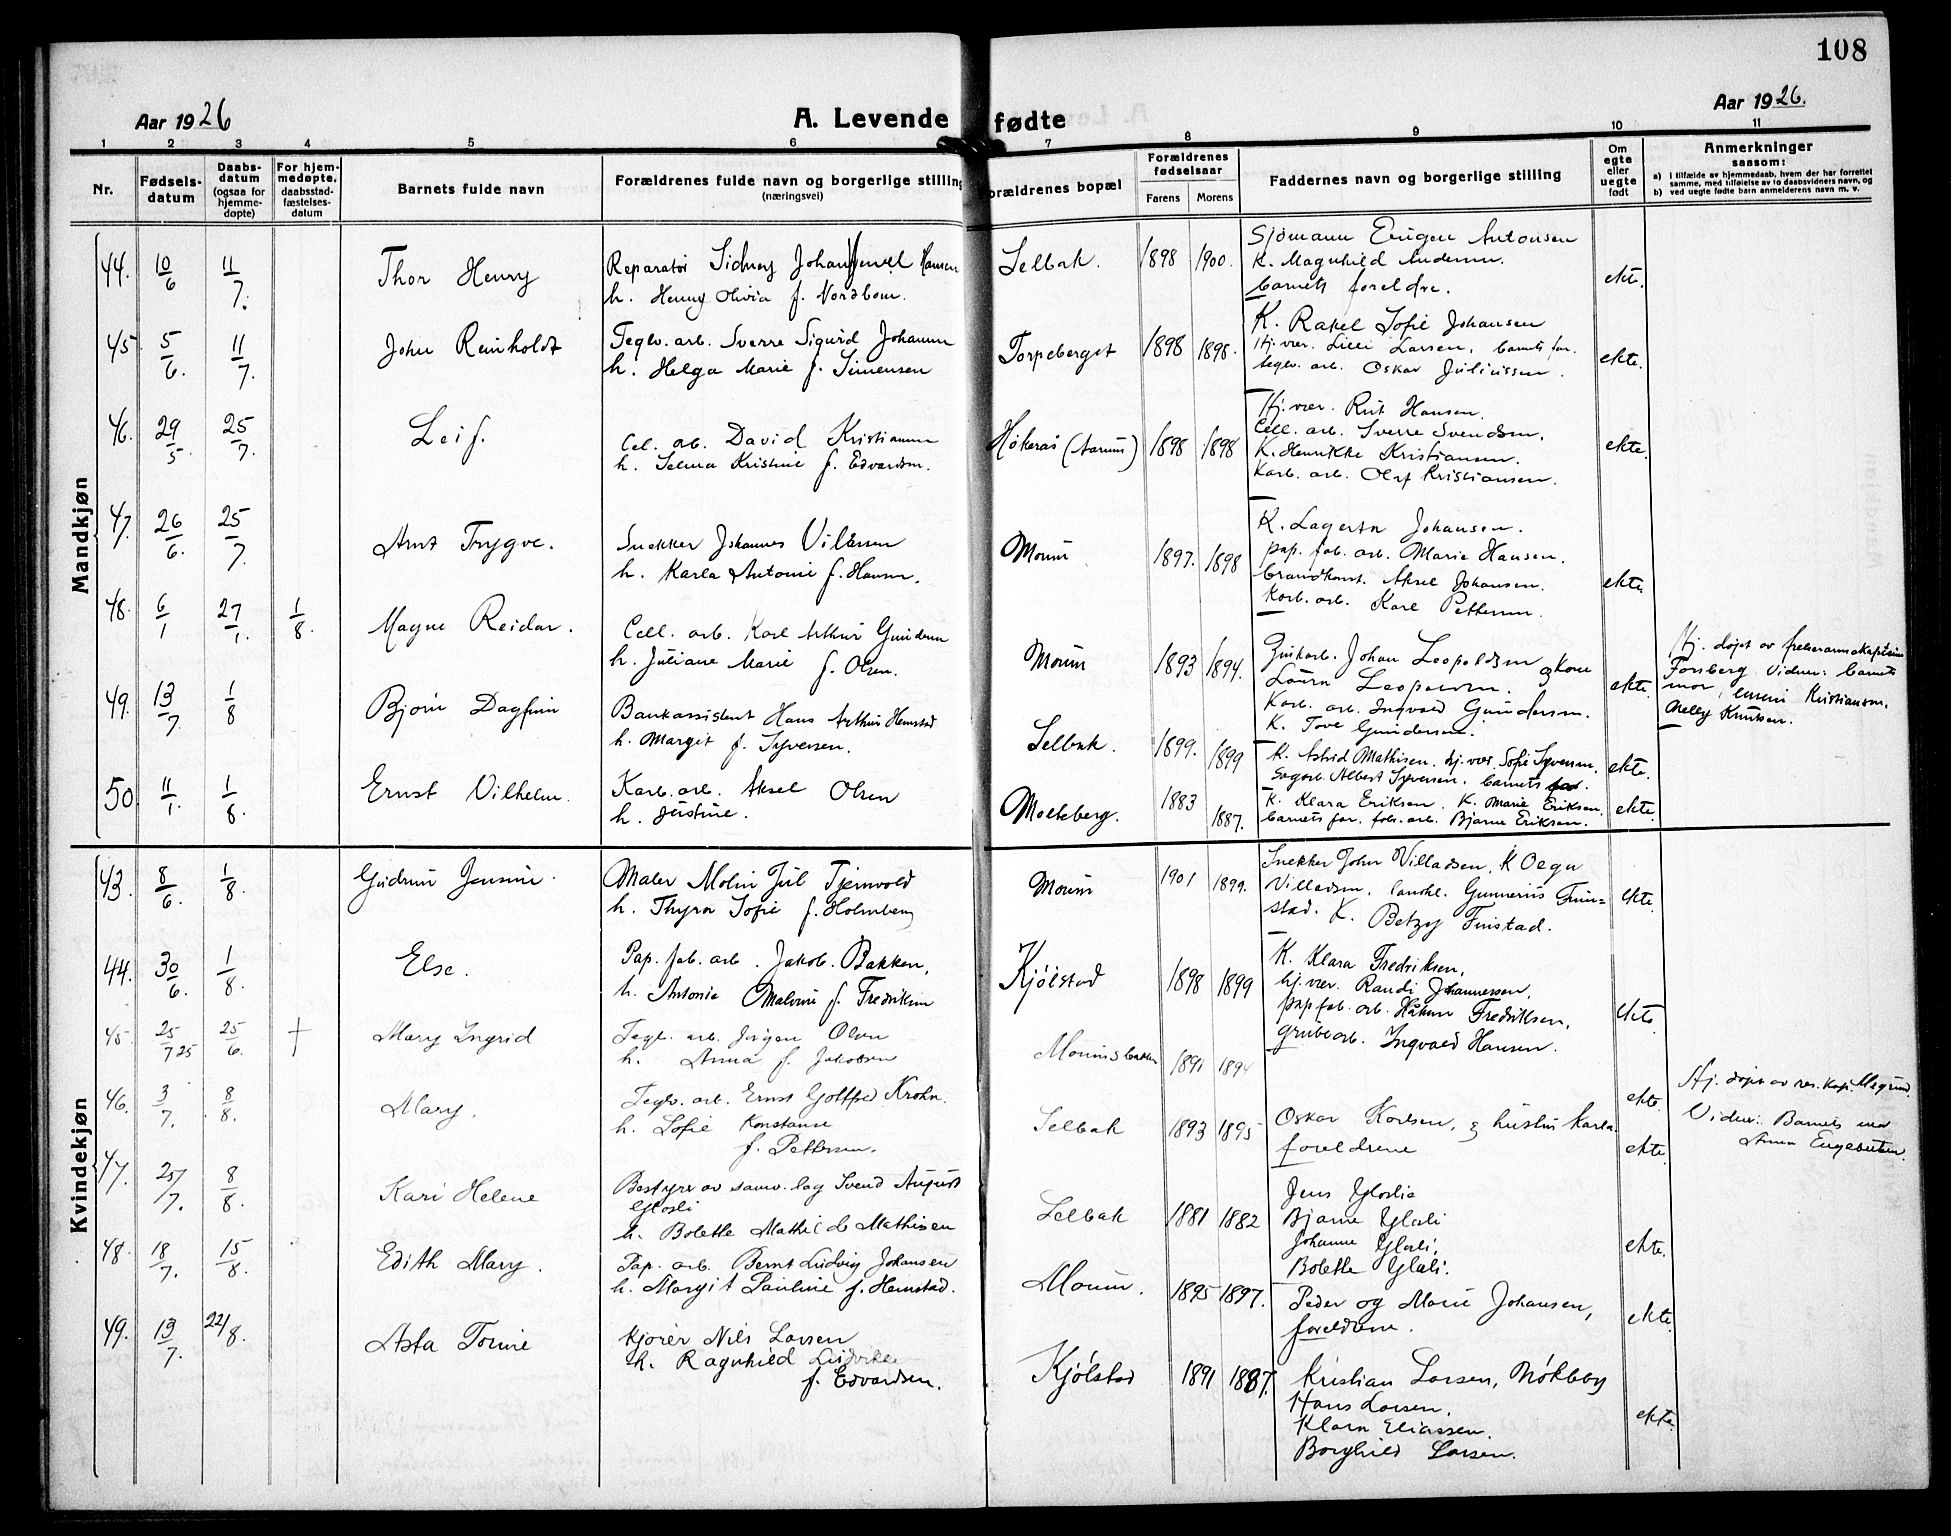 108
Aar 1926
A. Levende fødte
Aar 1926.
1 2 3 4 5 6 7 8 9 10 11
Nr.
Fødsels-
datum
Daabs-
datum
(ogsaa for
hjemme-
døpte)
For hjem-
medøpte,
daabsstad-
fæstelses-
datum
Barnets fulde navn
Forældrenes fulde navn og borgerlige stilling
(næringsvei)
orældrenes bopæl
Forældrenes
fødselsaar
Farens Morens
Faddernes navn og borgerlige stilling
Om
egte
eller
uegte
født
Anmerkninger
saasom:
a) i tilfælde av hjemmedaab, hvem der har forrettet
samme, med tilføielse av to daabsvidners navn, og
b) ved uegte fødte barn anmelderens navn m. v.
Mandkjøn
44. 10/6 11/7. Thor Henry
Reparatør Sidney Johan Hansen
h. Henny Olivia f. Nordbom.
Selbak. 1898 1900.
Sjømann Antonsen
K. Magnhild Andersen.
barnets foreldre.
ekte.
45 5/6. 11/7. John Reinholdt
Teglv. arb. Sverre Sigurd Johansen
h. Helga Marie f. Simensen
Torpeberget 1898 1898.
K. Rakel Sofie Johansen
Hj. vær. Lilli Larsen, barnets far.
teglv. arb. Oskar Juliussen.
ekte.
46. 29/5. 25/7. Leif.
Cel. arb. David Kristiansen
h. Selma Kristine f. Edvardsen.
Høkerås (Aarum) 1898 1898
Hj. vær. Rut Hansen.
Cell. arb. Sverre Svendsen.
K. Henrikke Kristiansen.
Karb. arb. Olaf Kristiansen.
ekte.
47. 26/6. 25/7. Arnt Trygve.
Snekker Johannes
h. Karla Antonie f. Hansen.
Moum 1897. 1898
K. Lagerta Johansen.
pap. fab. arb. Marie Hansen.
brandkonst. Aksel Johansen.
Karb. arb. Karl Pettersen.
ekte.
48. 6/1 27/1. 1/8. Magne Reidar.
Cell. arb. Karl Arthur Gundersen
h. Juliane Marie f. Olsen.
Moum 1893 1894.
Johan Leopoldsen og kone
Laura Leopoldsen.
Karb. arb. Ingvald Gundersen.
K. Tove Gundersen.
ekte.
Hj. døpt av frelsesarmekaptein
Forsberg. Vidner: barnets
mor, Kristiansen,
Nelly Knutsen.
49. 13/7 1/8 Bjørn Dagfinn
Bankassistent Hans Arthur Hemstad
h. Margit f. Syversen.
Selbak. 1899. 1899
K. Astrid Mathisen. hj. vær. Sofie Syversen,
Sagarb. Albert Syversen. barnets far.
ekte.
50 11/1. 1/8. Ernst Vilhelm.
Karb. arb. Aksel Olsen
h. Justine.
Molteberg. 1883 1887.
K. Klara Eriksen. K. Marie Eriksen.
barnets far. fab. arb. Bjarne Eriksen.
ekte.
Kvindekjøn
43. 8/6. 1/8. Gudrun Jensine.
Maler Molin Jul Tjernvold
h. Thyra Sofie f. Holmberg
Moum 1901 1899.
Snekker John Villadsen, K. Olga
Villadsen, Gunnerius Fin-
stad. K. Betzy Finstad.
ekte.
44. 30/6. 1/8. Else.
Pap. fab. arb. Jakob. Bakken,
h. Antonie Malvine f. Fredriksen
Kjølstad 1898 1899
K. Klara Fredriksen,
hj. vær. Randi Johannessen,
papfab. arb. Håkon Fredriksen,
grubearb. Ingvald Hansen.
ekte.
45 25/7 25 25/6. † Mary Ingrid
Tegl. arb. Jørgen Olsen
h. Anna f. Jakobsen
Moumsbakken 1891 1894
ekte.
Hj. døpt av res. kap.
Vidner: Barnets mor
Anna Engebretsen.
46. 3/7. 8/8. Mary.
Teglv. arb. Ernst Gottfred Krohn.
h. Sofie Konstanse
f. Pettersen.
Selbak 1893 1895
Oskar Karlsen, & hustru Karla
foreldrene
ekte.
47. 25/7. 8/8. Kari Helene
Bestyrer av samv. lag Svend August
Glosli
h. Bolette Mathilde Mathisen
Selbak 1881 1882
Jens Gloslie
Bjarne Glosli
Johanne Glosli.
Bolette Glosli.
ekte.
48. 18/7. 15/8. Edith Mary.
Pap. arb. Bernt Ludvig Johansen
h. Margit Pauline f. Hemstad.
Moum. 1895 1897.
Peder og Marie Johansen,
foreldrene.
ekte.
49. 13/7. 22/8. Asta Torine
Kjører Nils Larsen
h. Ragnhild Ludvikke
f. Edvardsen.
Kjølstad 1891 1887.
Kristian Larsen, Nøkleby
Hans Larsen,
Klara Eliassen.
Borghild Larsen.
ekte.